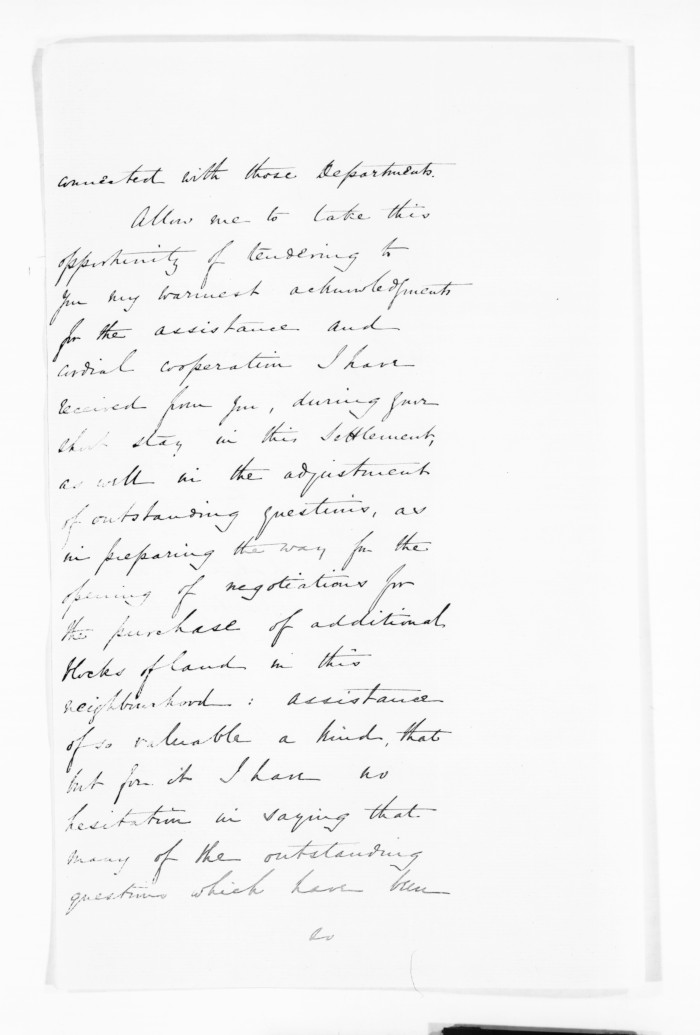 connected with those Departments.
Allow me to take this
opportunity of tendering to
you my warmest acknowledgments
for the assistance and
cordial cooperation I have
received from you, during your
short stay in this Settlement,
as well in the adjustment
of outstanding questions, as
in preparing the way for the
opening of negotiations for
the purchase of additional
blocks of land in this
neighbourhood: assistance
of so valuable a kind, that
but for it I have no
hesitation in saying that
many of the outstanding
questions which have been
so